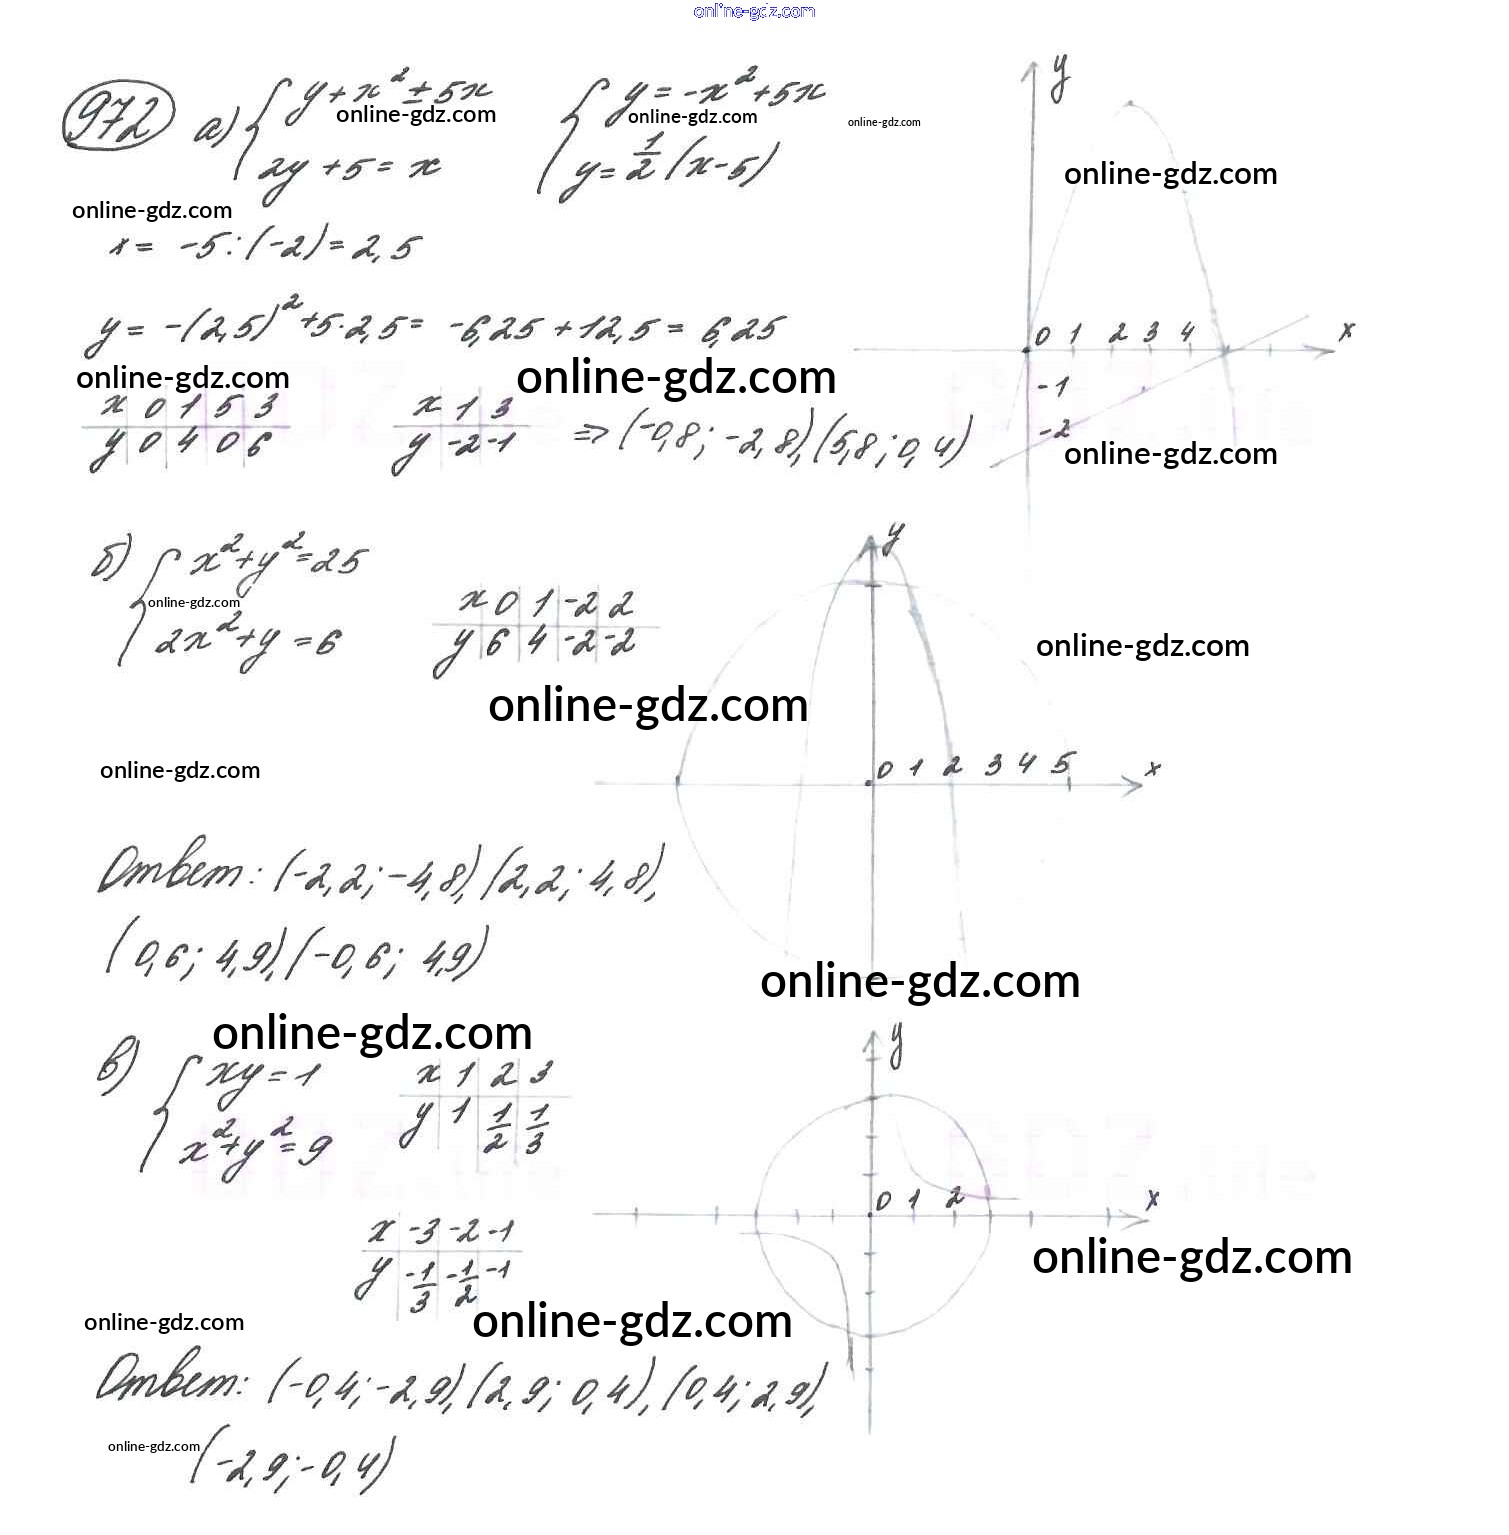 online-gdz.com
972 а) { y + x² ± 5x { y = -x² + 5x
online-gdz.com online-gdz.com online-gdz.com
2y + 5 = x y = 1/2 (x - 5)
online-gdz.com
online-gdz.com
x = -5 : (-2) = 2,5
y = -(2,5)² + 5 · 2,5 = -6,25 + 12,5 = 6,25
online-gdz.com online-gdz.com
x 0 1 5 3
y 0 4 0 6
x 1 3
y -2 -1
=> (-0,8; -2,8), (5,8; 0,4)
y
0 1 2 3 4 x
-1
-2
online-gdz.com
б) { x² + y² = 25
online-gdz.com
2x² + y = 6
x 0 1 -2 2
y 6 4 -2 -2
y
online-gdz.com
online-gdz.com
online-gdz.com
0 1 2 3 4 5 x
Ответ: (-2,2; -4,8), (2,2; 4,8),
(0,6; 4,9), (-0,6; 4,9)
online-gdz.com
online-gdz.com
в) { xy = 1
x² + y² = 9
x 1 2 3
y 1 1/2 1/3
x -3 -2 -1
y -1/3 -1/2 -1
y
0 1 2 x
online-gdz.com
online-gdz.com online-gdz.com
Ответ: (-0,4; -2,9), (2,9; 0,4), (0,4; 2,9),
online-gdz.com (-2,9; -0,4)